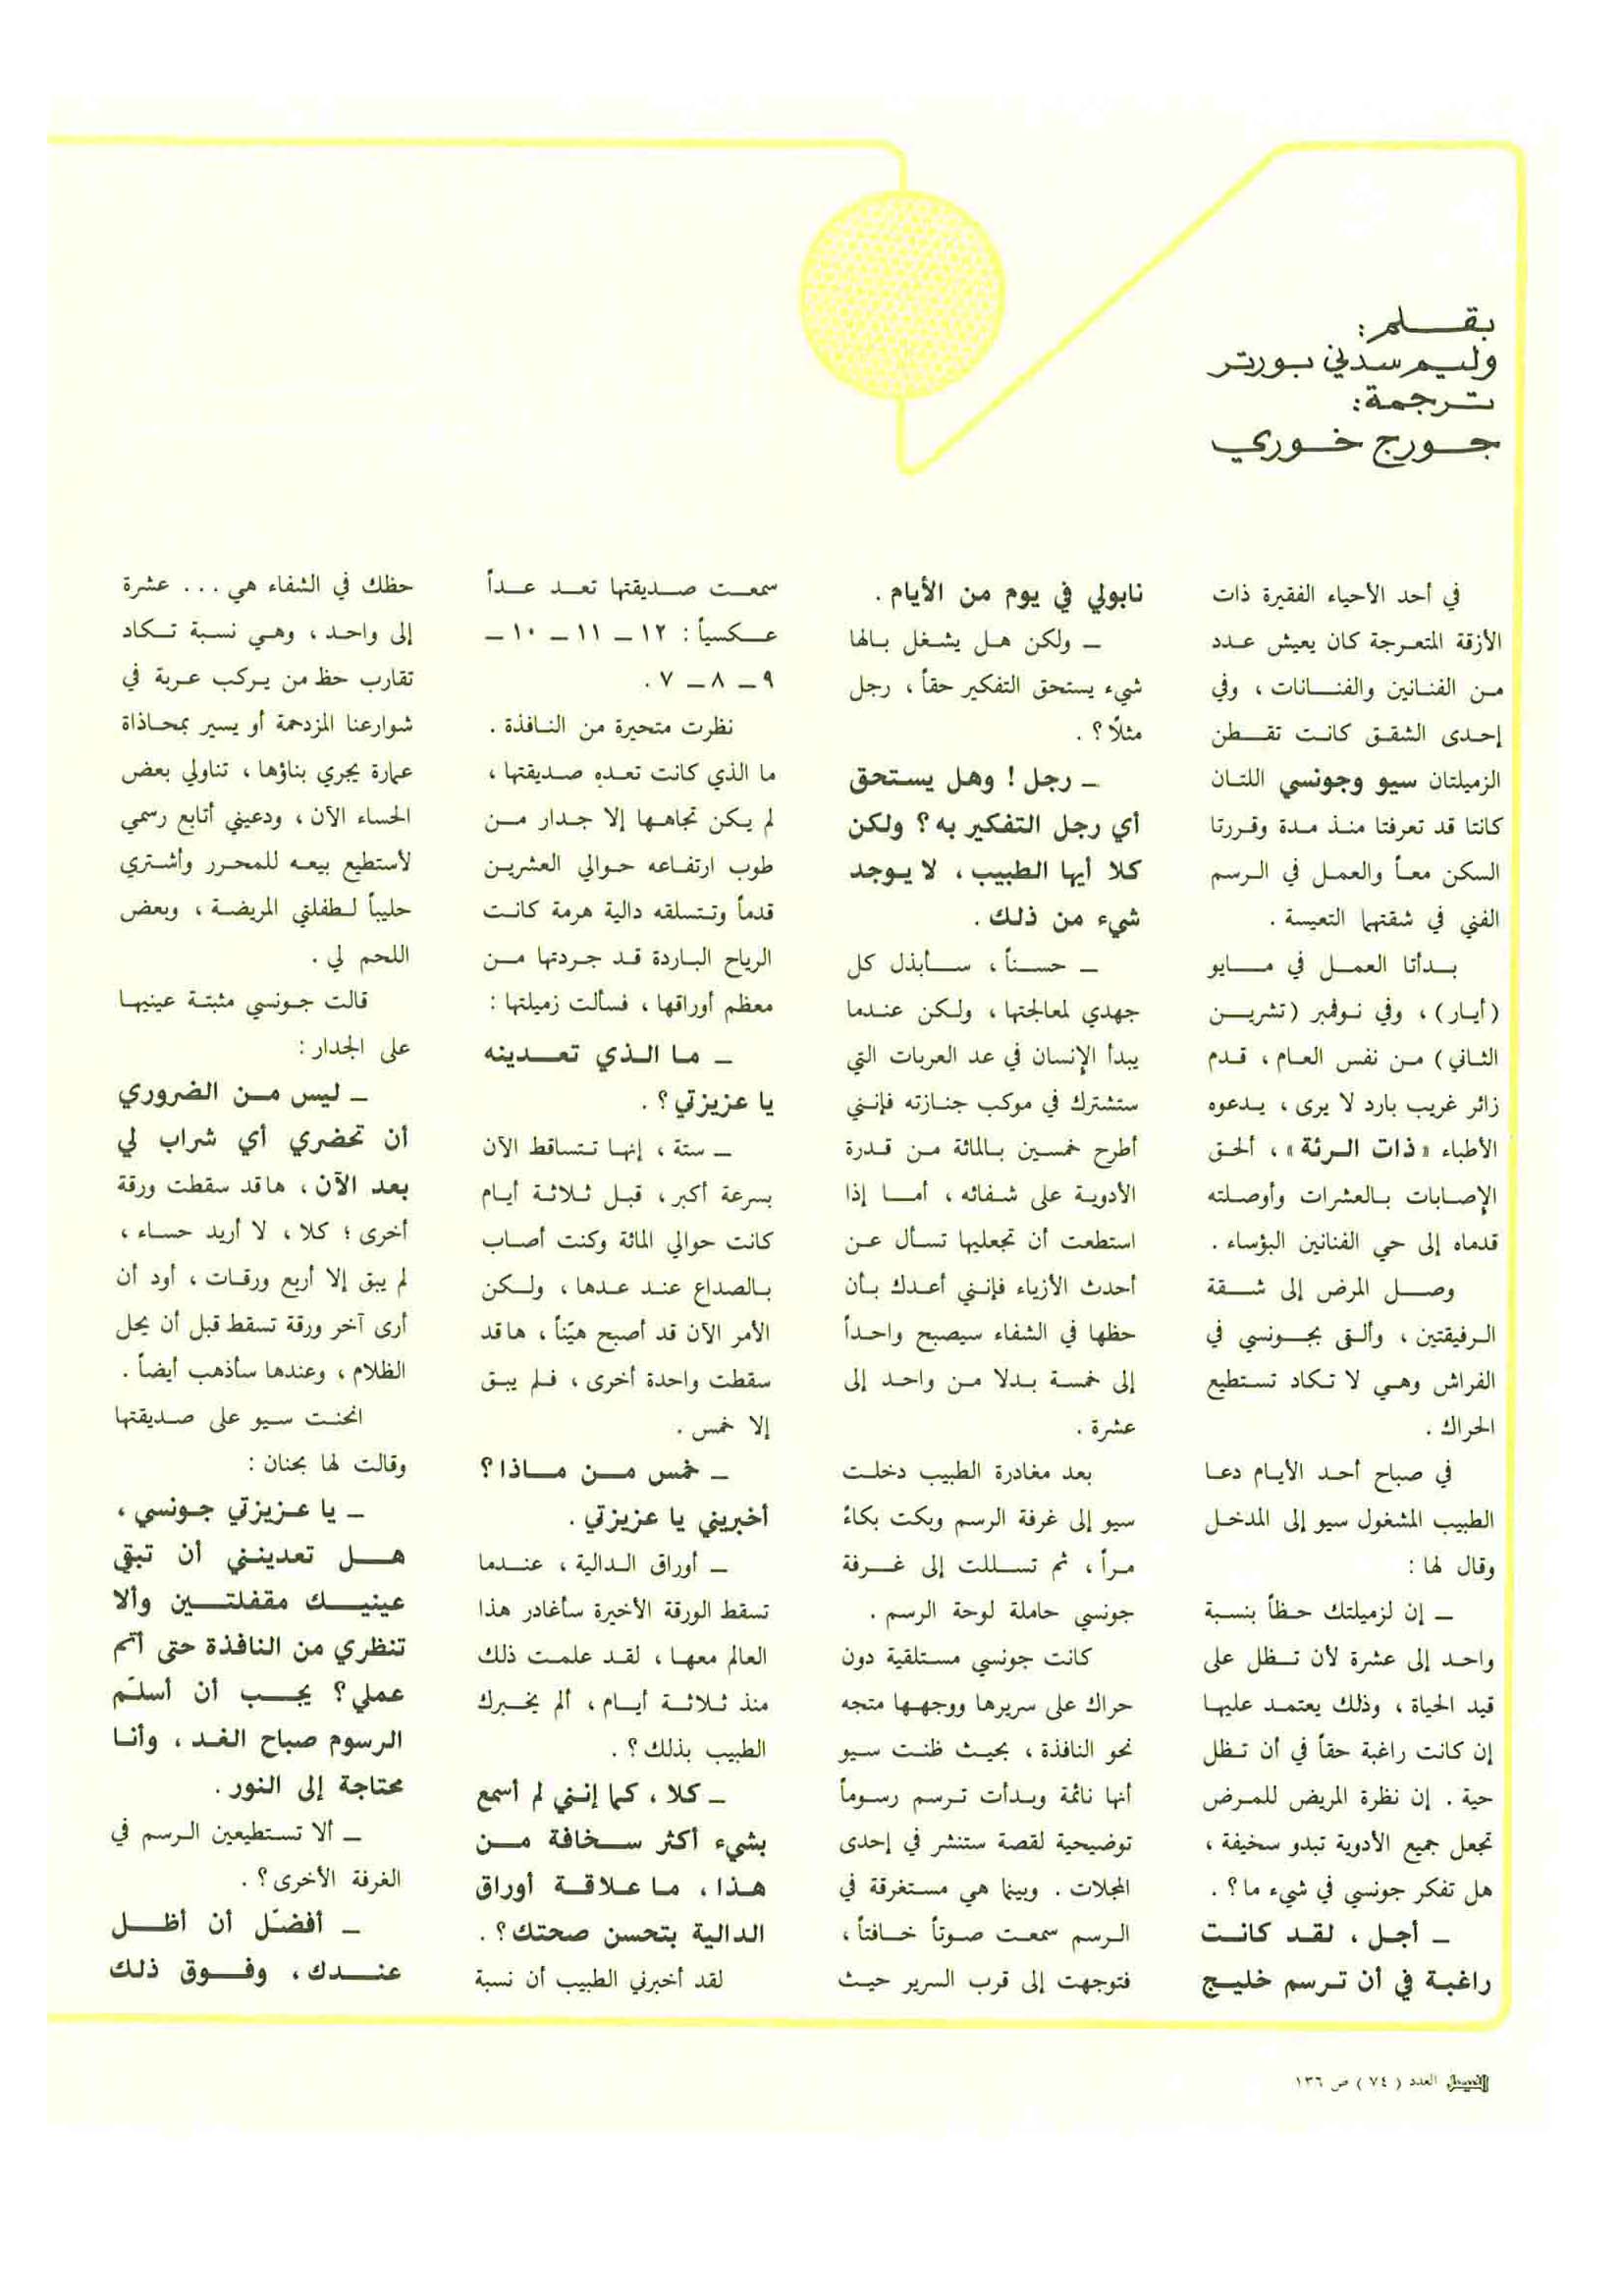 بقلم:
وليم سدني بورتر
ترجمة:
جورج خوري
في أحد الأحياء الفقيرة ذات
الأزقة المتعرجة كان يعيش عدد
من الفنانين والفنانات ، وفي
إحدى الشقق كانت تقطن
الزميلتان سيو وجونسي اللتان
كانتا قد تعرفتا منذ مدة وقررتا
السكن معاً والعمل في الرسم
الفني في شقتهما التعيسة .
بدأتا العمل في مايو
(أيار) ، وفي نوفمبر (تشرين
الثاني) من نفس العام ، قدم
زائر غريب بارد لا يرى ، يدعوه
الأطباء «ذات الرئة» ، ألحق
الإصابات بالعشرات وأوصلته
قدماه إلى حي الفنانين البؤساء .
وصل المرض إلى شقة
الرفيقتين ، وألقى بجونسي في
الفراش وهي لا تكاد تستطيع
الحراك .
في صباح أحد الأيام دعا
الطبيب المشغول سيو إلى المدخل
وقال لها :
ـ إن لزميلتك حظاً بنسبة
واحد إلى عشرة لأن تظل على
قيد الحياة ، وذلك يعتمد عليها
إن كانت راغبة حقاً في أن تظل
حية . إن نظرة المريض للمرض
تجعل جميع الأدوية تبدو سخيفة ،
هل تفكر جونسي في شيء ما ؟ .
ـ أجل ، لقد كانت
راغبة في أن ترسم خليج
نابولي في يوم من الأيام .
ـ ولكن هل يشغل بالها
شيء يستحق التفكير حقاً ، رجل
مثلاً ؟ .
ـ رجل ! وهل يستحق
أي رجل التفكير به ؟ ولكن
كلا أيها الطبيب ، لا يوجد
شيء من ذلك .
ـ حسناً ، سأبذل كل
جهدي لمعالجتها ، ولكن عندما
يبدأ الإنسان في عد العربات التي
ستشترك في موكب جنازته فإنني
أطرح خمسين بالمائة من قدرة
الأدوية على شفائه ، أما إذا
استطعت أن تجعليها تسأل عن
أحدث الأزياء فإنني أعدك بأن
حظها في الشفاء سيصبح واحداً
إلى خمسة بدلا من واحد إلى
عشرة .
بعد مغادرة الطبيب دخلت
سيو إلى غرفة الرسم وبكت بكاءً
مراً ، ثم تسللت إلى غرفة
جونسي حاملة لوحة الرسم .
كانت جونسي مستلقية دون
حراك على سريرها ووجهها متجه
نحو النافذة ، بحيث ظنت سيو
أنها نائمة وبدأت ترسم رسوماً
توضيحية لقصة ستنشر في إحدى
المجلات . وبينما هي مستغرقة في
الرسم سمعت صوتاً خافتاً ،
فتوجهت إلى قرب السرير حيث
سمعت صديقتها تعد عداً
عكسياً : ١٢ ـ ١١ ـ ١٠ ـ
٩ ـ ٨ ـ ٧ .
نظرت متحيرة من النافذة .
ما الذي كانت تعده صديقتها ،
لم يكن تجاهها إلا جدار من
طوب ارتفاعه حوالي العشرين
قدماً وتتسلقه دالية هرمة كانت
الرياح الباردة قد جردتها من
معظم أوراقها ، فسألت زميلتها :
ـ ما الذي تعدينه
يا عزيزتي ؟ .
ـ ستة ، إنها تتساقط الآن
بسرعة أكبر ، قبل ثلاثة أيام
كانت حوالي المائة وكنت أصاب
بالصداع عند عدها ، ولكن
الأمر الآن قد أصبح هيّناً ، ها قد
سقطت واحدة أخرى ، فلم يبق
إلا خمس .
ـ خمس من ماذا ؟
أخبريني يا عزيزتي .
ـ أوراق الدالية ، عندما
تسقط الورقة الأخيرة سأغادر هذا
العالم معها ، لقد علمت ذلك
منذ ثلاثة أيام ، ألم يخبرك
الطبيب بذلك ؟ .
ـ كلا ، كما إنني لم أسمع
بشيء أكثر سخافة من
هذا ، ما علاقة أوراق
الدالية بتحسن صحتك ؟ .
لقد أخبرني الطبيب أن نسبة
حظك في الشفاء هي ... عشرة
إلى واحد ، وهي نسبة تكاد
تقارب حظ من يركب عربة في
شوارعنا المزدحمة أو يسير بمحاذاة
عمارة يجري بناؤها ، تناولي بعض
الحساء الآن ، ودعيني أتابع رسمي
لأستطيع بيعه للمحرر وأشتري
حليباً لطفلتي المريضة ، وبعض
اللحم لي .
قالت جونسي مثبتة عينيها
على الجدار :
ـ ليس من الضروري
أن تحضري أي شراب لي
بعد الآن ، ها قد سقطت ورقة
أخرى ؛ كلا ، لا أريد حساء ،
لم يبق إلا أربع ورقات ، أود أن
أرى آخر ورقة تسقط قبل أن يحل
الظلام ، وعندها سأذهب أيضاً .
انحنت سيو على صديقتها
وقالت لها بحنان :
ـ يا عزيزتي جونسي ،
هل تعدينني أن تبقي
عينيك مقفلتين وألا
تنظري من النافذة حتى أتم
عملي ؟ يجب أن أسلّم
الرسوم صباح الغد ، وأنا
محتاجة إلى النور .
ـ ألا تستطيعين الرسم في
الغرفة الأخرى ؟ .
ـ أفضّل أن أظل
عندك ، وفوق ذلك
الفيصل العدد ( ٧٤ ) ص ١٣٦